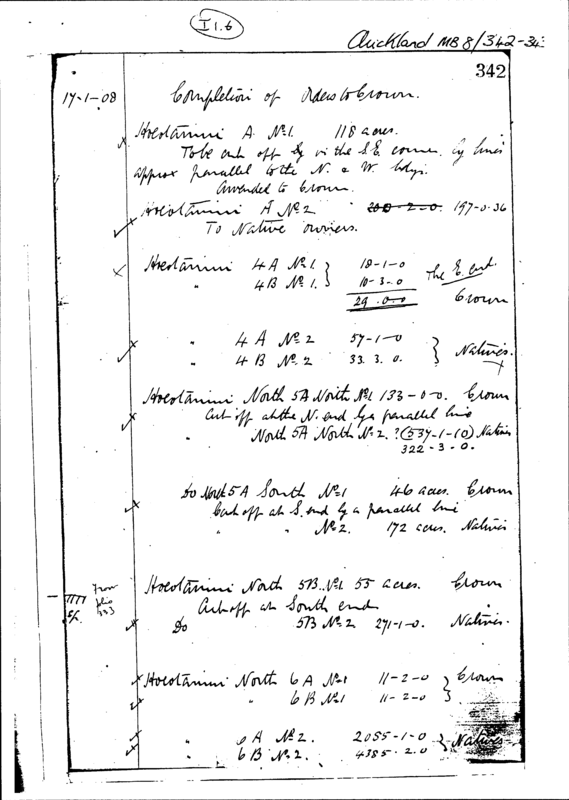 I 1.6
Auckland MB 8/342-34
342
17-1-08
Completion of Orders to Crown.
Hoeotainui A No 1. 118 acres.
To be cut off by in the S.E. corner by lines
approx parallel to the N. & W. bdys.
Awarded to Crown.
Hoeotainui A No 2 197-0-36
To Native owners.
Hoeotainui 4A No 1. 18-1-0
" 4B No 1. 10-3-0 The E. end
29.0.0 Crown
" 4A No 2 57-1-0
" 4B No 2 33.3.0. Natives.
Hoeotainui North 5A North No 1 133-0-0. Crown
Cut off at the N. end by a parallel line
" North 5A North No 2. ?(537-1-10) Natives
322-3-0.
Do North 5A South No 1 46 acres. Crown
Cut off at S. end by a parallel line
" " No 2. 172 acres. Natives
From
folio
333
Hoeotainui North 5B. No 1 55 acres. Crown
Cut off at South end
Do 5B No 2 271-1-0. Natives.
Hoeotainui North 6A No 1 11-2-0 Crown
" 6B No 1 11-2-0
" 6A No 2. 2055-1-0 Natives
" 6B No 2. 4385.2.0